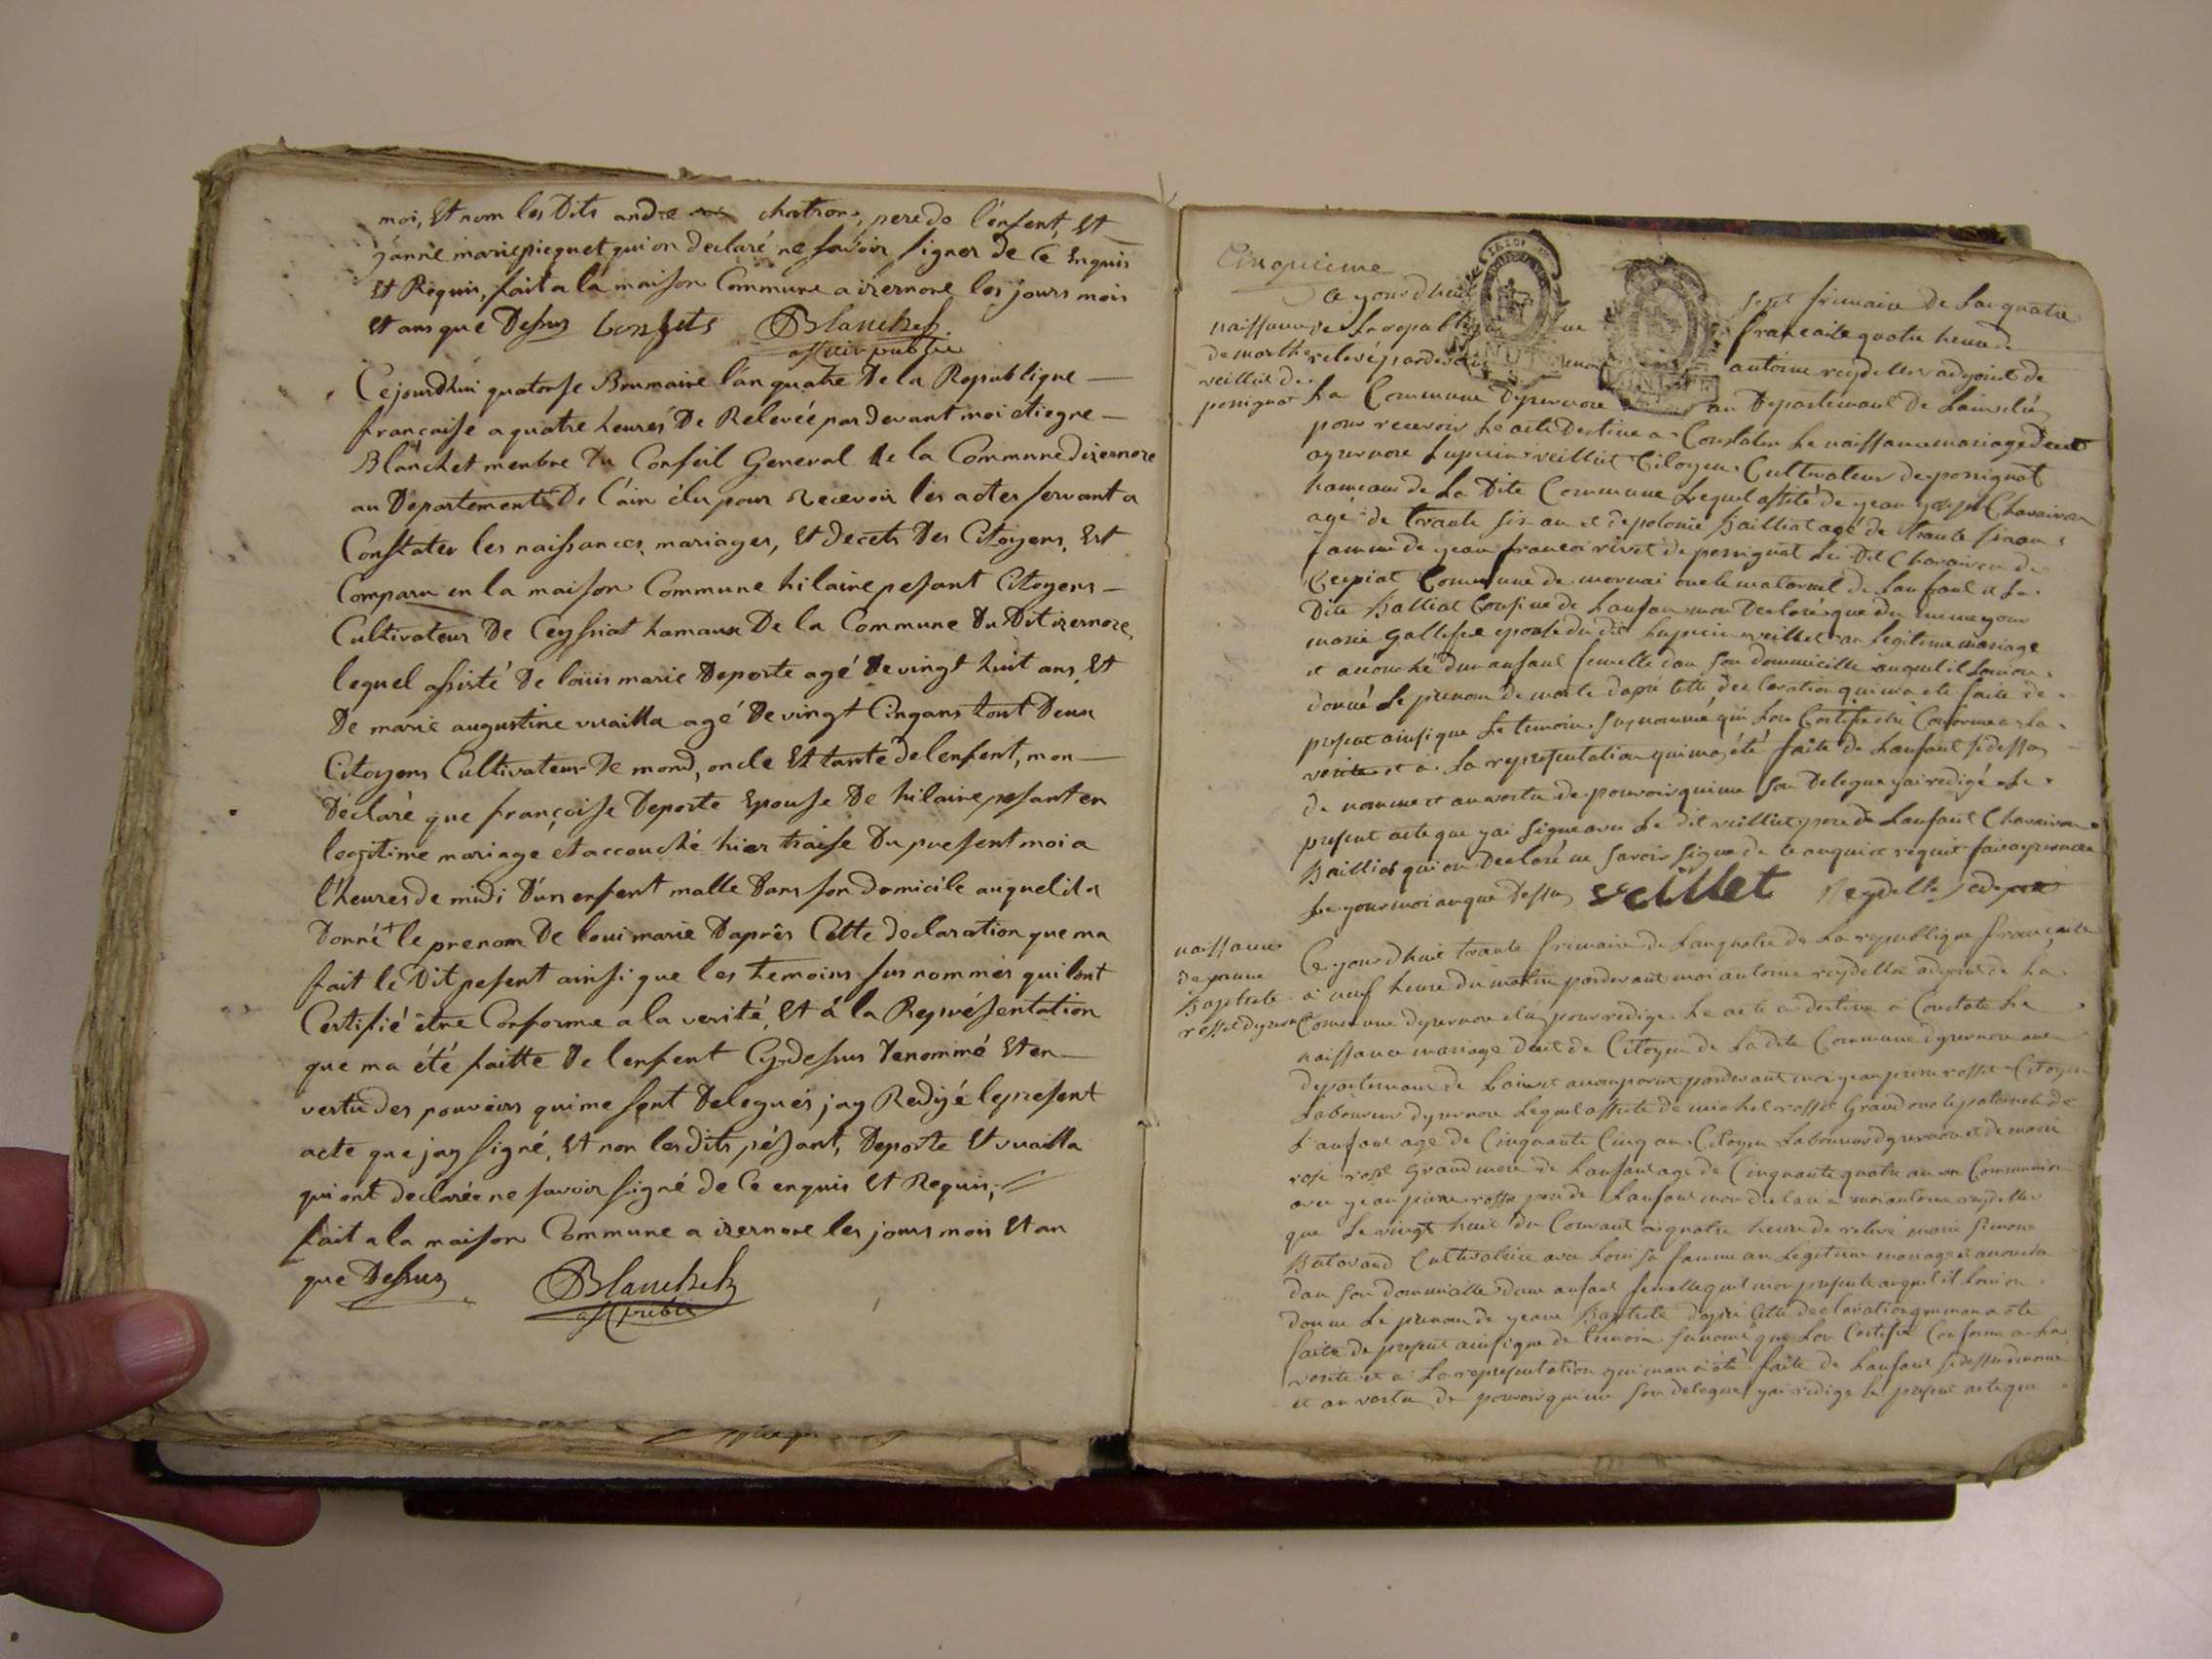 moi, Et nom les Dits andre chatron, pere de l'enfent, Et
janne marie pieguet qui on declaré ne savoir signer de Ce Enquis
Et Requis, fait a la maison Commune a izernore les jours mois
Et ans que Dessus Blanchet
officier public
Cejourdhui quatorse Brumaire l'an quatre De la Republique
française a quatre heures De Relevée par devant moi etiegne
Blanchet menbre Du Conseil General de la Commune dizernore
au Departement De l'ain élu pour Recevoir les actes servant a
Constater les naissances, mariages, Et decets Des Citoyens, Est
Comparu en la maison Commune hilaire pesant Citoyens
Cultivateur De Ceyssiat hamaux De la Commune Du Dit izernore,
lequel assisté De loüis marie Deporte agé De vingt huit ans, Et
De marie augustine vuailla agé De vingt Cinq ans tout Deux
Citoyens Cultivateur De mond, oncle Et tante de lenfent, mon
Déclaré que françoise Deporte Epouse De hilaire pesant en
legitime mariage et accouché hier traise Du present moi a
l'heures de midi D'un enfent malle Dans son domicile auquel il a
Donné le prenom De loui marie D'aprês Cette declaration que ma
fait le Dit pesent ainsi que les temoins sus nommés qui lont
Certifié être Conforme a la verité, Et á la Représentation
que ma été faitte De lenfent Cy Dessus Denommé Et en
vertu des pouvoirs qui me sont Delegués jay Redigé le present
acte que jay signé, Et non les dits pésant, Deporte Et vuailla
qui ont declarée ne savoir signé de Ce enquis Et Requis,
fait a la maison Commune a izernore les jours mois Et an
que Dessus Blanchet
off public
Cinquieme
Ce yourdhui sept frimaire de Lan quatre
naissance de La republique francaise quatre heure de
de marthe relevé pardevant moi antoine reydellet adjoint de
veillet de
perignat La Commune Dysernore au Departemant De Lain elu
pour recevoir Le acte Destine a Constater Le naissance mariage Decet
aysernore Lupicin veilliet Citoyen Cultivateur de perignat
hameau de La Dite Commune Lequel assité de yean yoseph Chavaivon
agé de trante six an et depolonie Bailliat agé de trante six an
famme de yean francoi rivet de perignat Le Dit Chavaivon de
Ceissiat Commune de mornai oncle maternel de Lanfant et La
Dite Balliat Cousine de Lanfan mon Declaré que du meme your
marie Gallefse epouse du dit Lupicin veillet an Legitime mariage
et acouché dun anfant femelle dan son dommicille auquel il Lon
donné Le prenom de marte dapré cette declaration qui ma ete faite de
present ainsi que Le temoin surnommé qui Lon Certifie etre Conforme a La
verite et a La representation qui ma été faite de Lanfant sidessu
de nomme et an vertu de pouvoir qui me son Delegue yai redigé Le
present acte que yai signe avec Le dit veilliet pere de Lanfant Chavaivon
Bailliat qui on Declaré ne savoir signe de ce anquis et requis fait aysernore
Le your moi an que Dessu veillet Reydellet adjoint
naissance Ce yourdhui trante frimaire de Lan quatre de La republique francaise
de yeanne
Baptiste a neuf heure du matin pardevant moi antoine reydellet adjoint de La
rosset dysernore Commune dysernore elu pour rediger Le acte a destine a Constate Le
naissance mariage decet de Citoyen de La dite Commune dysernore
departemant de Lain et a comparu pardevant moi yean pierre rosset Citoyen
Laboureur dysernore Lequel assiste de michel rosset Grand oncle paternele de
Lanfant age de Cinquante Cinq an Citoyen Laboureur dysernore et de marie
rose rosset Grand mere de Lanfant age de Cinquante quatre an
avec yean pierre rosset pere de Lanfant mon declare a moi antoine reydellet
que Le vingt huit du Courant a quatre heure de relevé marie simone
Butavand Cultivatrice avec Loui sa famme an Legitime mariage a acouché
dan son dommicille dune anfant femelle quil mon presente auquel il Lon
donne Le prenom de yeane Baptiste dapré Cette declaration que mon a ete
faite de present ainsi que de temoin surnomé que Lon Certifie Conforme a La
verite et a La representation qui mon a été faite de Lanfant sidessu denomé
et an vertu de pouvoir qui me son delegue yai redige Le present acte que